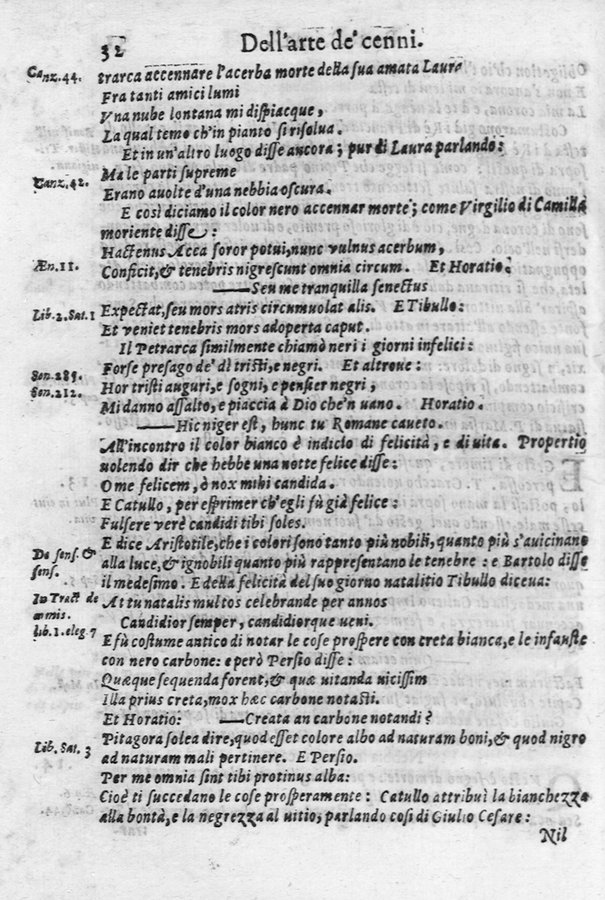 32 Dell'arte de' cenni.
Canz. 44. trarca accennare l'acerba morte della sua amata Laura
Fra tanti amici lumi
Vna nube lontana mi dispiacque,
La qual temo ch'in pianto si risolua.
Et in un'altro luogo disse ancora; pur di Laura parlando:
Canz. 42. Ma le parti supreme
Erano auolte d'una nebbia oscura.
E così diciamo il color nero accennar morte; come Virgilio di Camilla
moriente disse:
Hactenus Acca soror potui, nunc vulnus acerbum,
Æn. 11. Conficit, & tenebris nigrescunt omnia circum. Et Horatio.
—Seu me tranquilla senectus
Lib. 2. Sat. 1 Expectat, seu mors atris circumuolat alis. E Tibullo:
Et veniet tenebris mors adoperta caput.
Il Petrarca similmente chiamò neri i giorni infelici:
Son. 285. Forse presago de' dì tristi, e negri. Et altroue:
Son. 212. Hor tristi auguri, e sogni, e pensier negri,
Mi danno assalto, e piaccia à Dio che'n uano. Horatio.
—Hic niger est, hunc tu Romane caueto.
All'incontro il color bianco è indicio di felicità, e di uita. Propertio
uolendo dir che hebbe una notte felice disse:
O me felicem, ò nox mihi candida.
E Catullo, per esprimer ch'egli fù già felice:
Fulsere verè candidi tibi soles.
E dice Aristotile, che i colori sono tanto più nobili, quanto più s'auicinano
De sens. & sens. alla luce, & ignobili quanto più rappresentano le tenebre: e Bartolo disse
il medesimo. E della felicità del suo giorno natalitio Tibullo diceua:
In Tract de armis. At tu natalis multos celebrande per annos
Candidior semper, candidiorque ueni.
lib. 1. eleg. 7 E fù costume antico di notar le cose prospere con creta bianca, e le infauste
con nero carbone: e però Persio disse:
Quæque sequenda forent, & quæ uitanda uicissim
Illa prius creta, mox hæc carbone notasti.
Et Horatio: —Creata an carbone notandi?
Lib. Sat. 3 Pitagora solea dire, quod esset colore albo ad naturam boni, & quod nigro
ad naturam mali pertinere. E Persio.
Per me omnia sint tibi protinus alba:
Cioè ti succedano le cose prosperamente: Catullo attribuì la bianchezza
alla bontà, e la negrezza al uitio, parlando così di Giulio Cesare:
Nil